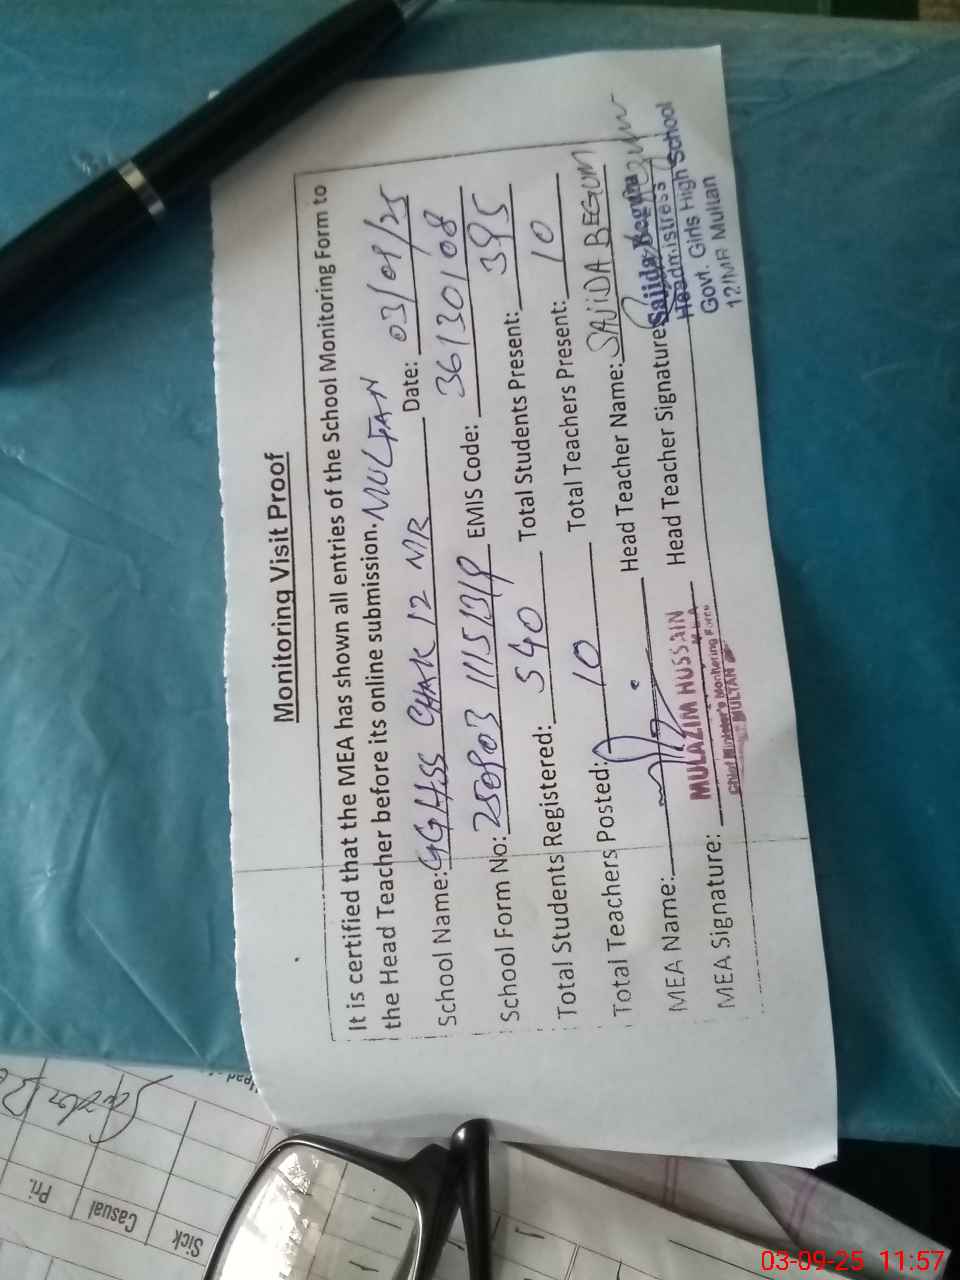 Monitoring Visit Proof
It is certified that the MEA has shown all entries of the School Monitoring Form to
the Head Teacher before its online submission. MULTAN
School Name: GGHSS CHAK 12 MR Date: 03/09/25
School Form No: EMIS Code: 36130108
Total Students Registered: 540 Total Students Present: 395
Total Teachers Posted: 10 Total Teachers Present: 10
MEA Name: Head Teacher Name: SAJIDA BEGUM
MEA Signature: Head Teacher Signature:
MULAZIM HUSSAIN
M.E.A
Chief Minister's Monitoring Force
MULTAN
Sajida Begum
Headmistress
Govt. Girls High School
12/MR Multan
Pri.
Casual
Sick
03-09-25 11:57